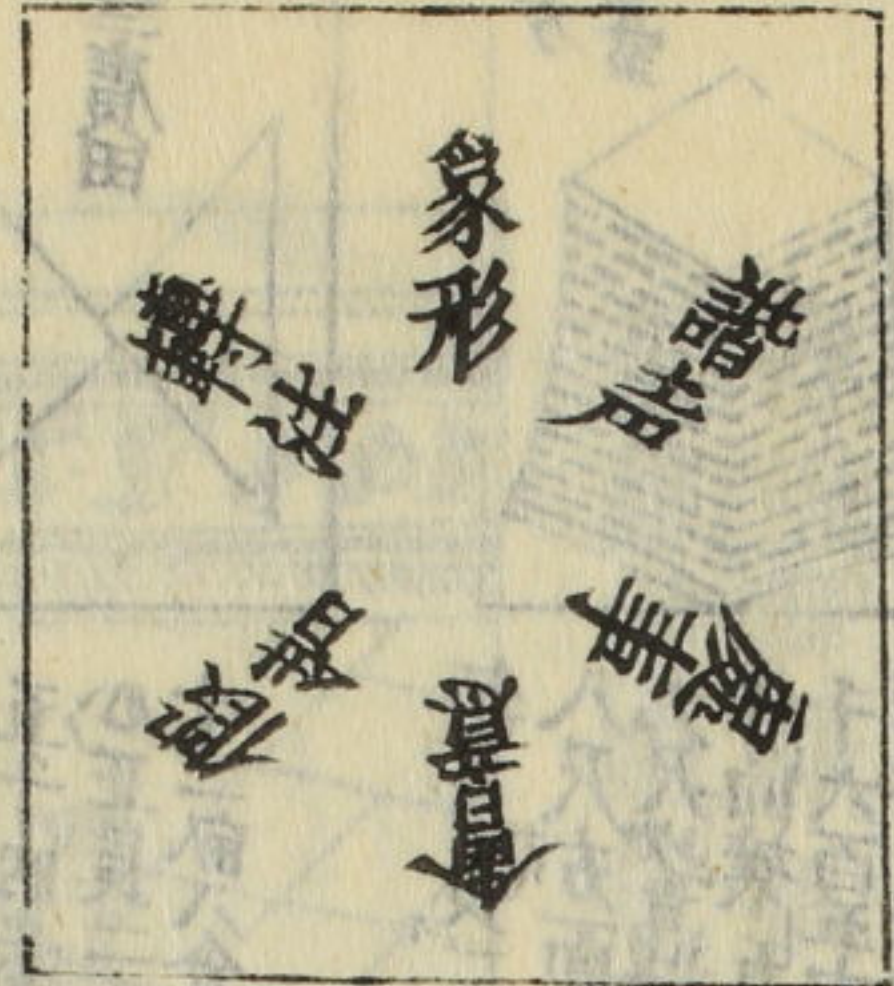 象形
諧声
處事
會意
假借
轉注